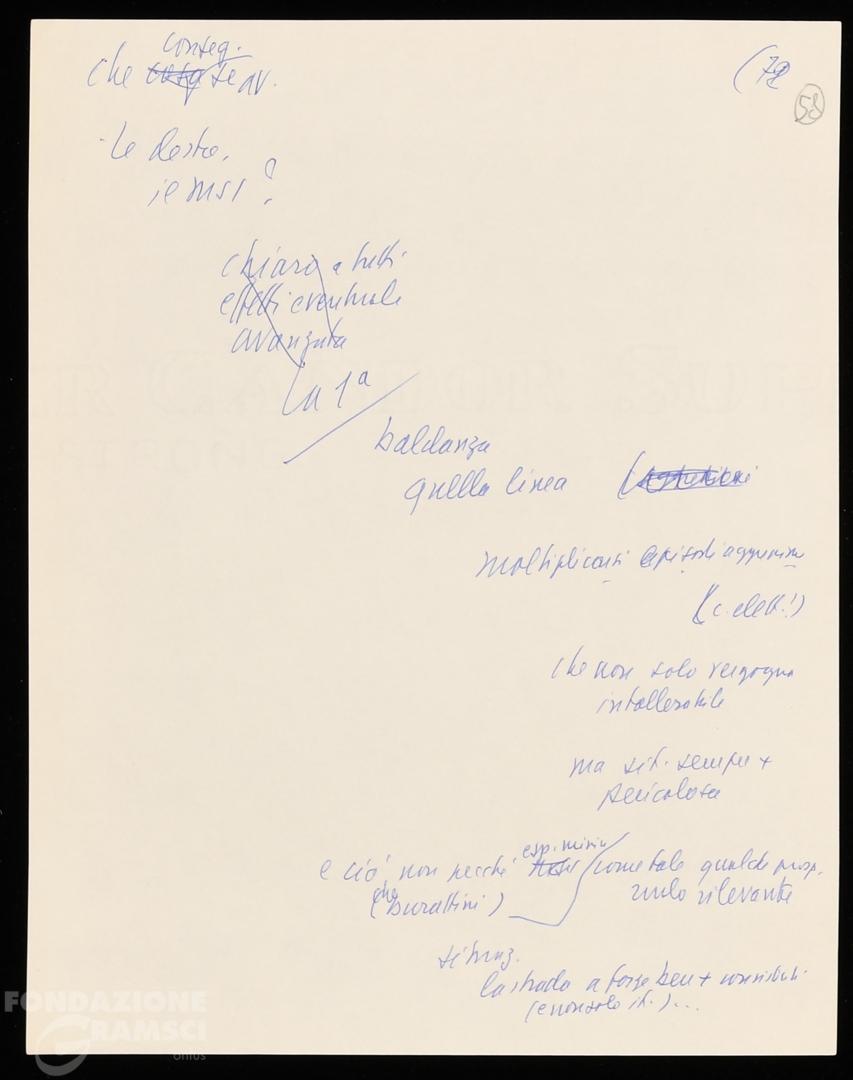 conseg.
che cosa se av.
(72
58
le destre,
il MSI ?
chiaro a tutti
effetti eventuale
avanzata
la 1ª
baldanza
quella linea
moltiplicarsi episodi
(c. elett.!)
che non solo vergogna
intollerabile
ma sit. sempre +
pericolosa
esp.
e ciò non perché come tale qualche prosp.
(che burattini)
ruolo rilevante
situaz.
la strada a forze ben +
(e non solo it.)...
FONDAZIONE
GRAMSCI
onlus